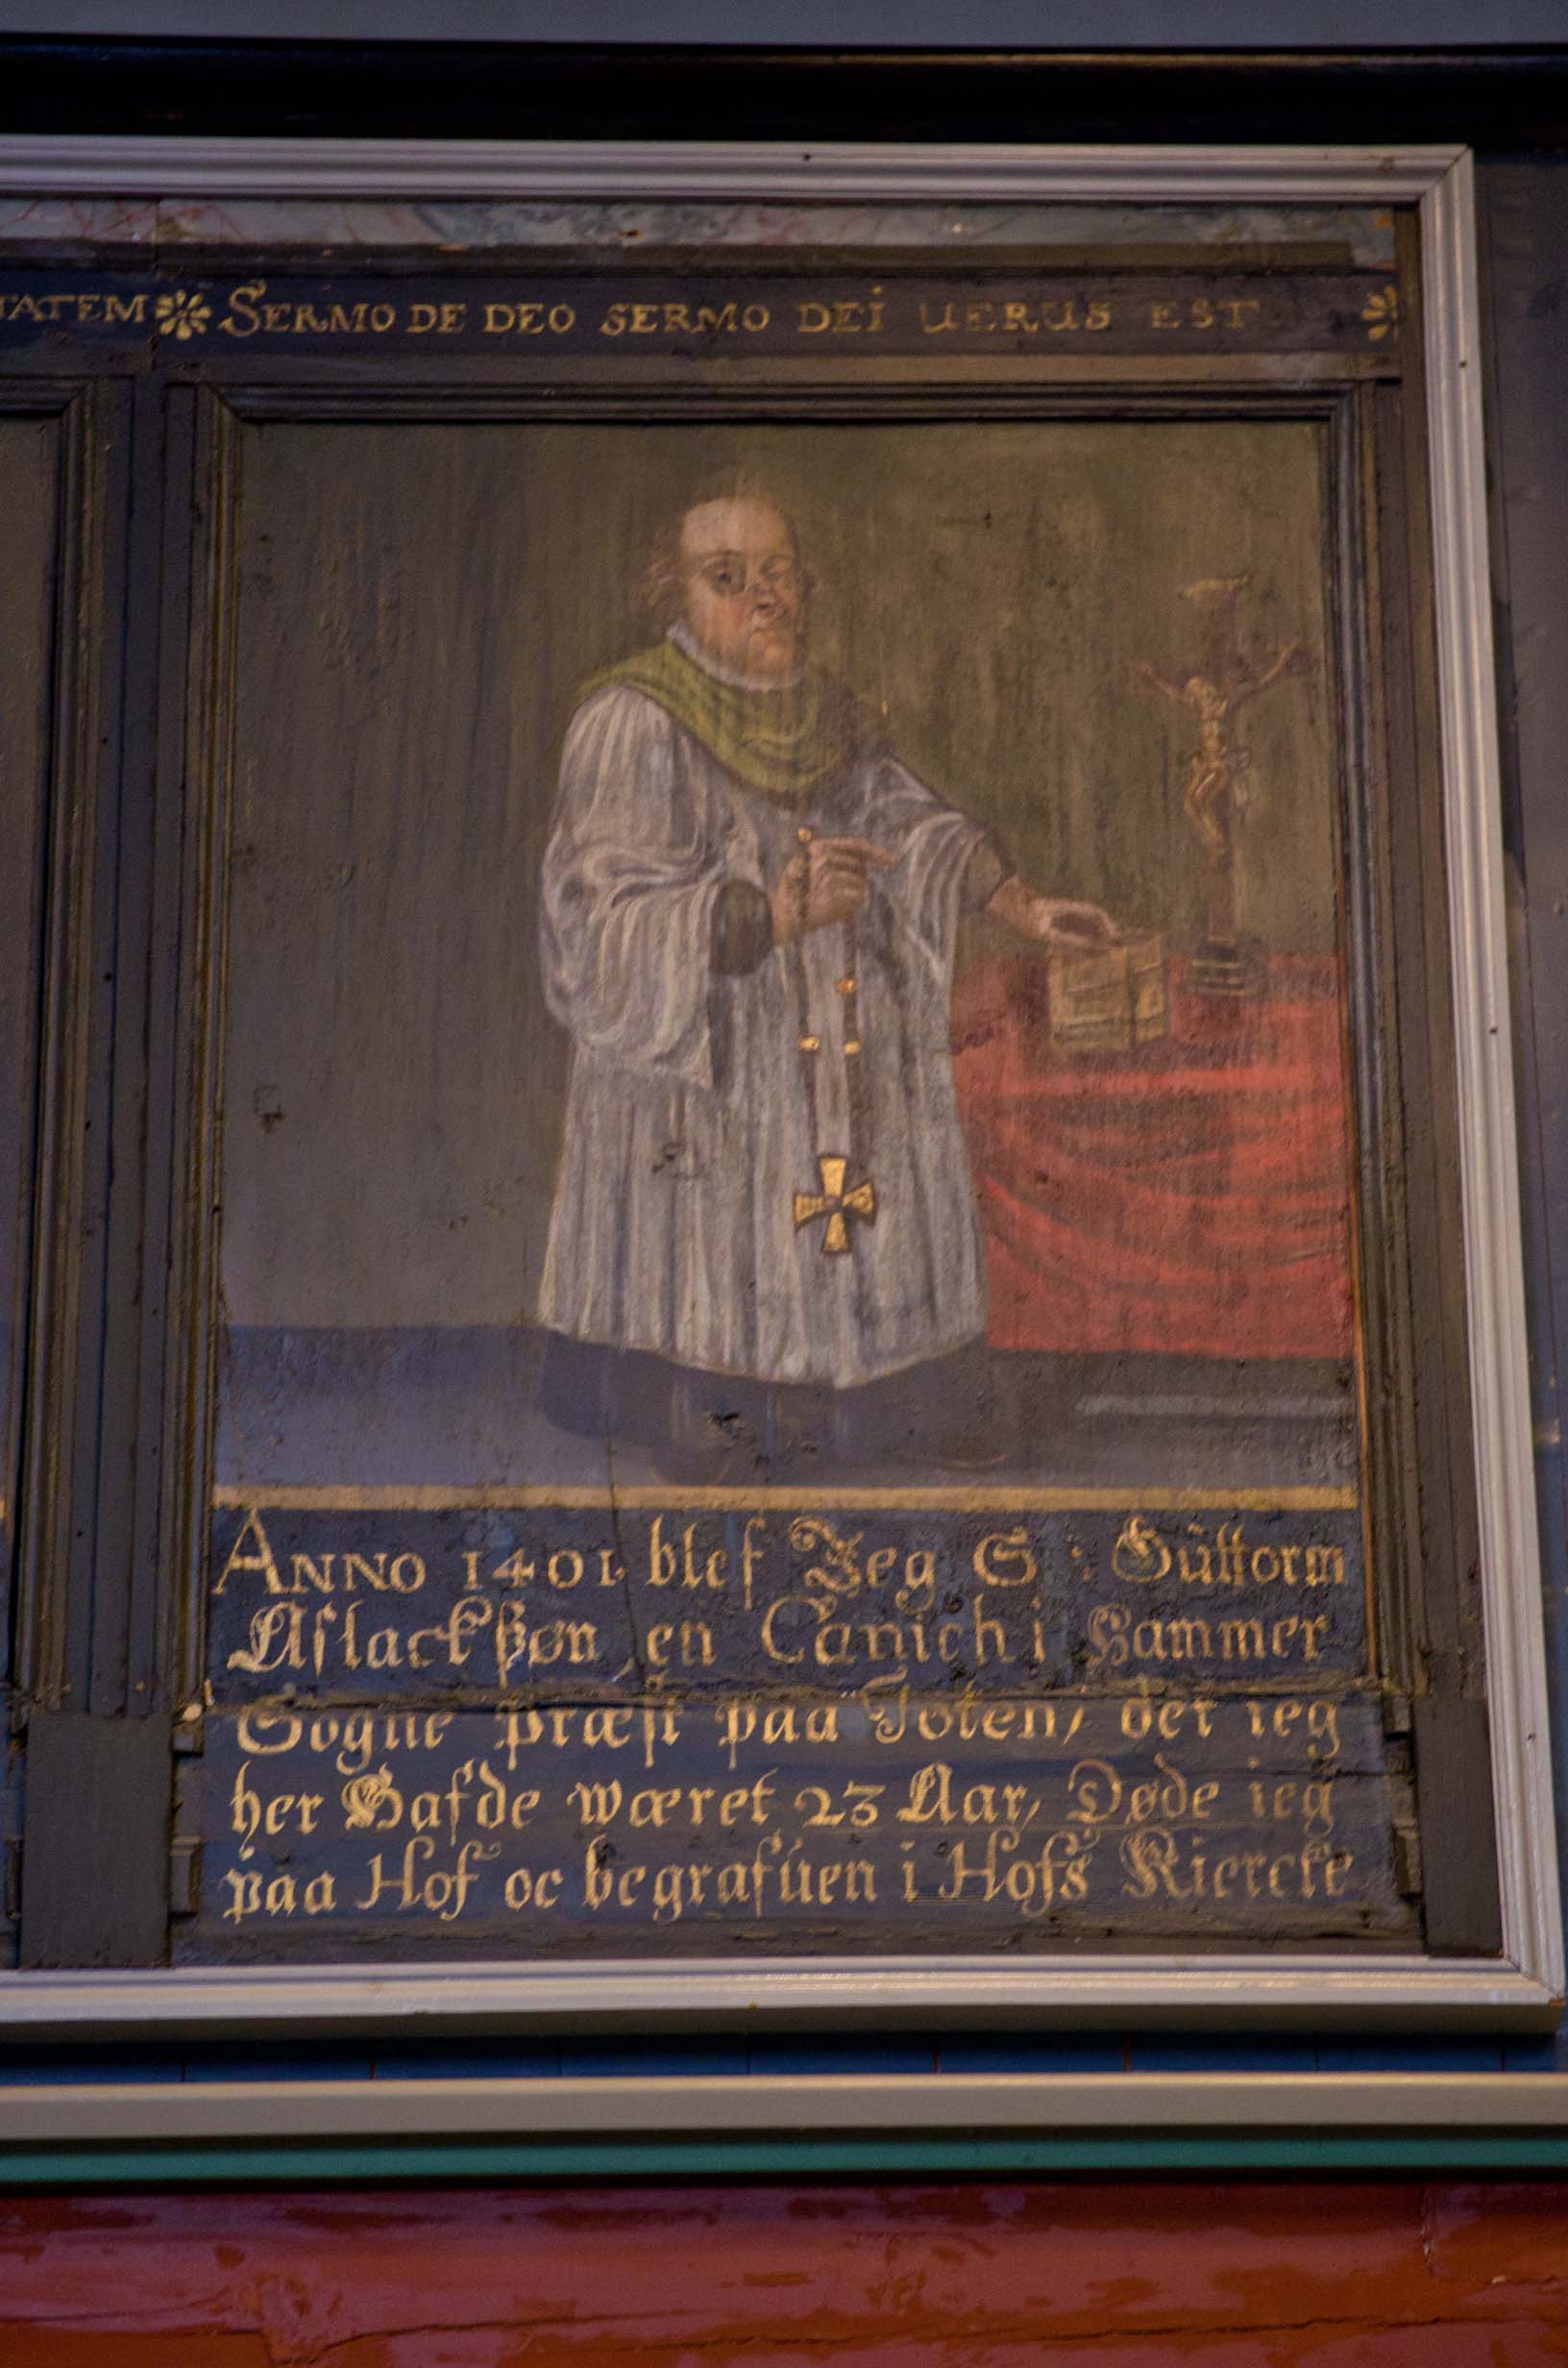 TATEM SERMO DE DEO SERMO DEI UERUS EST
ANNO 1401 blef Jeg S: Guttorm
Aslackßøn, en Canich i Hammer
Sogne præst paa Toten, der ieg
her Hafde wæret 23 Aar, Døde ieg
paa Hof oc begrafuen i Hofs Kiercke